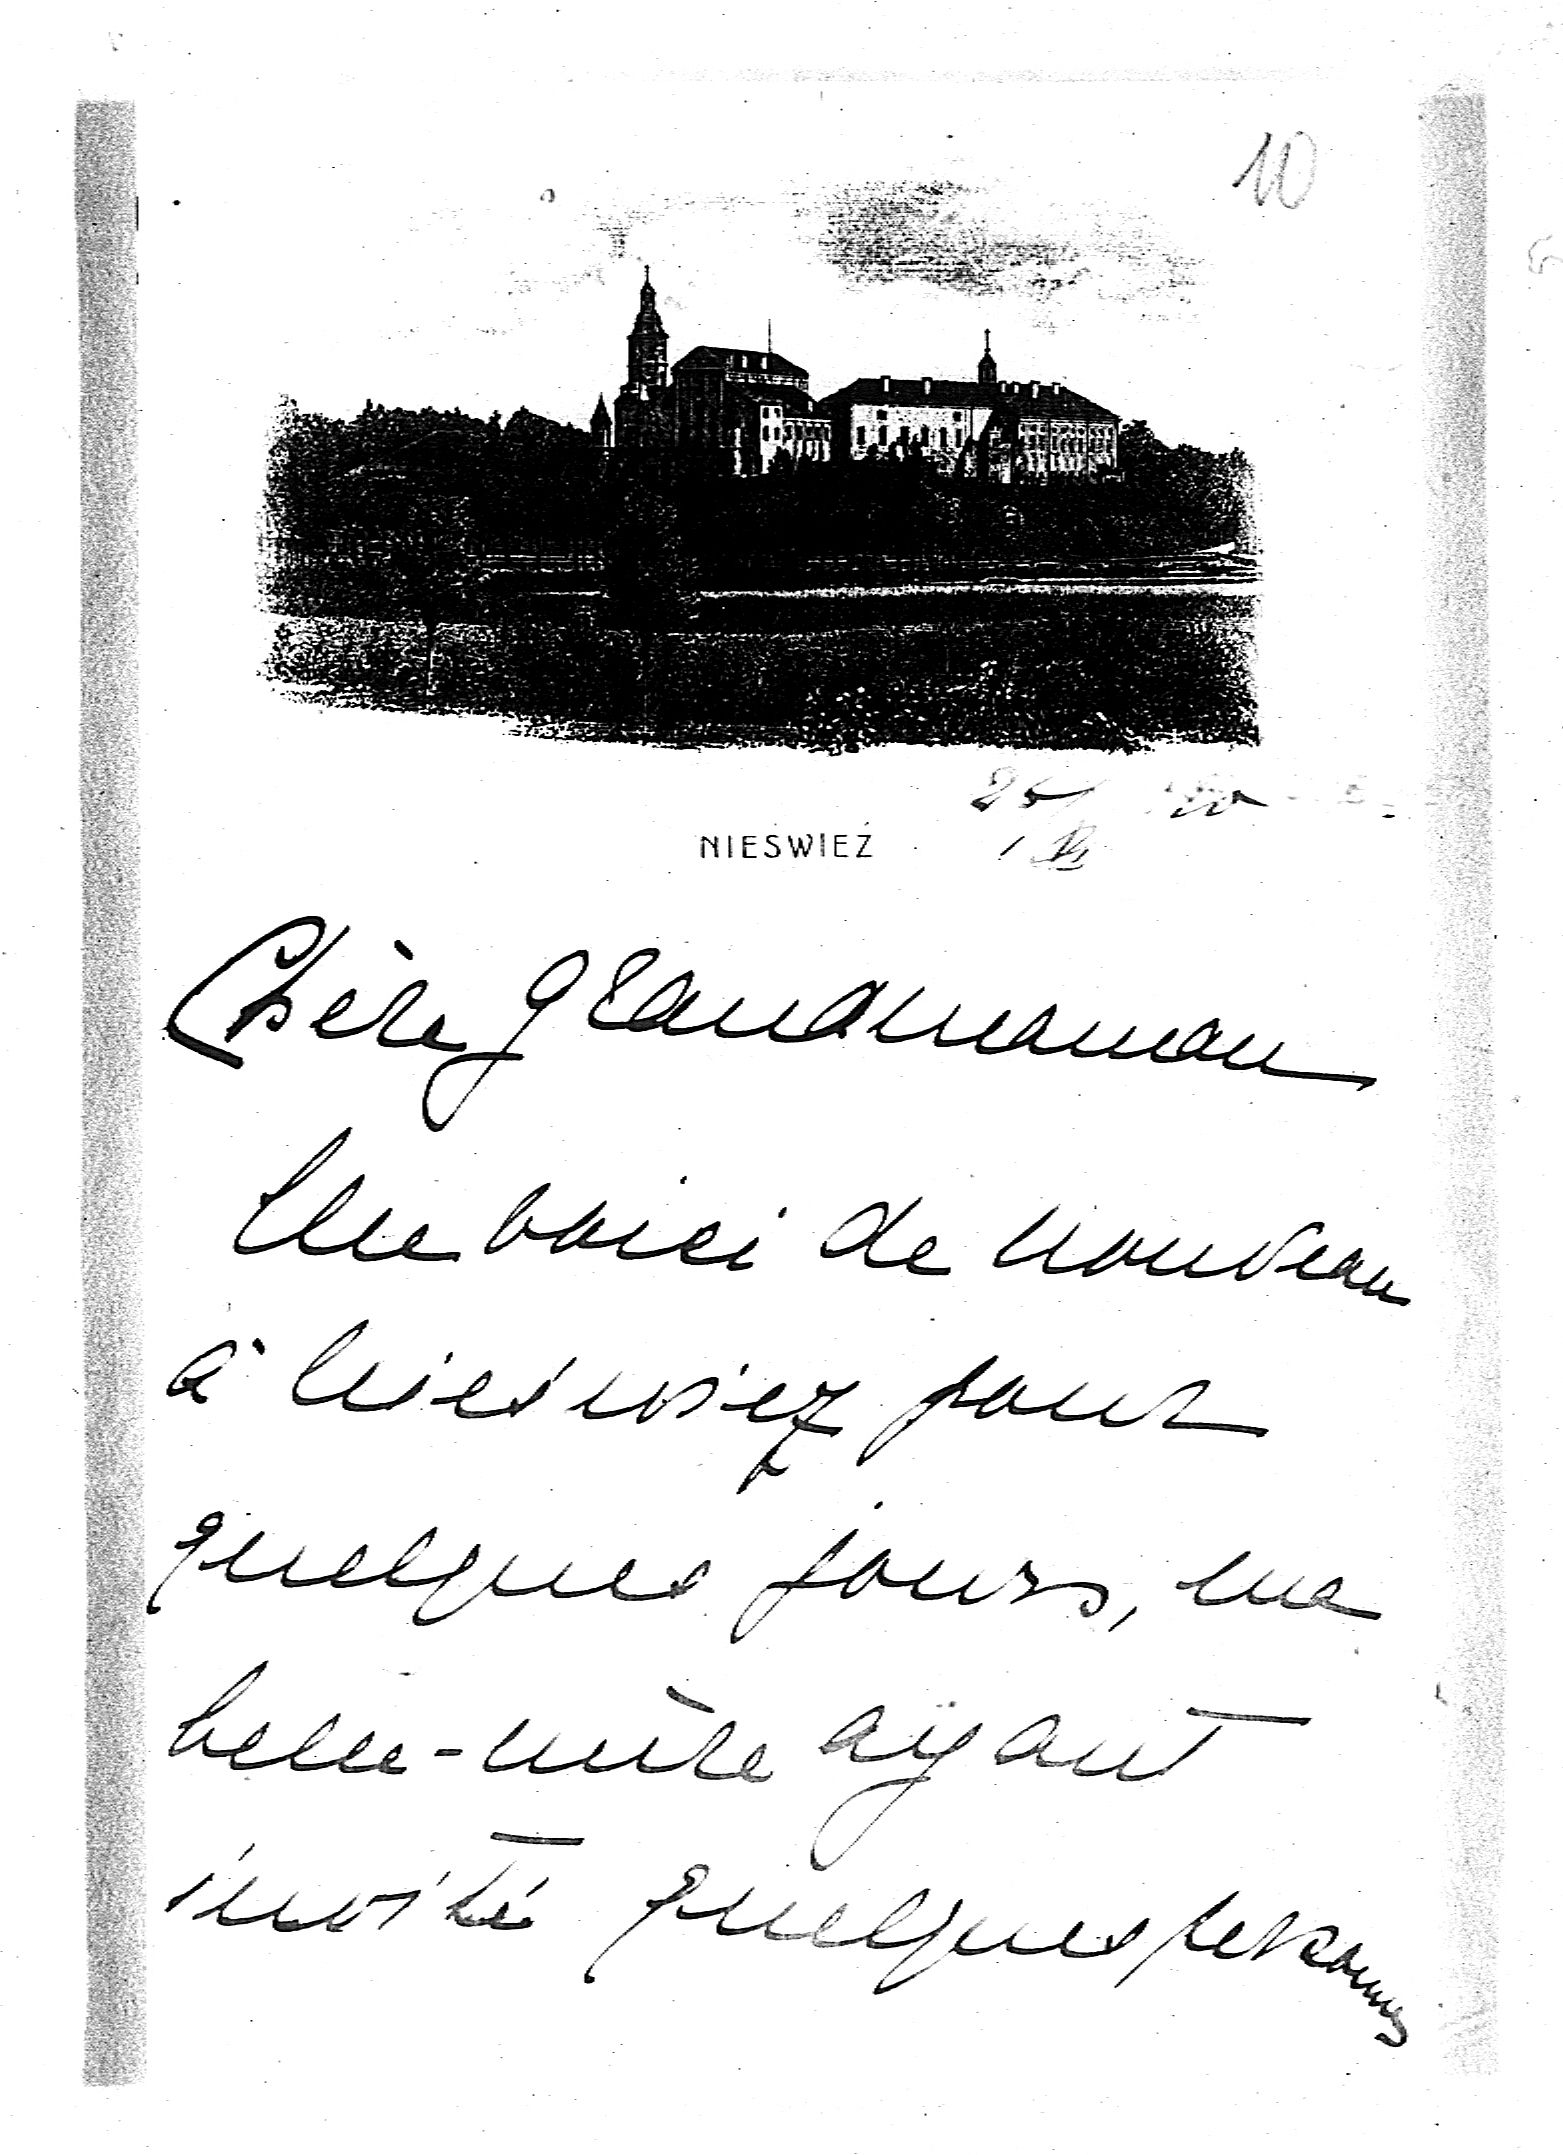 10
NIEŚWIEŻ
Chère Grandmaman
Me voici de nouveau
à Nieświez pour
quelques jours, ma
belle-mère ayant
invité quelques personnes